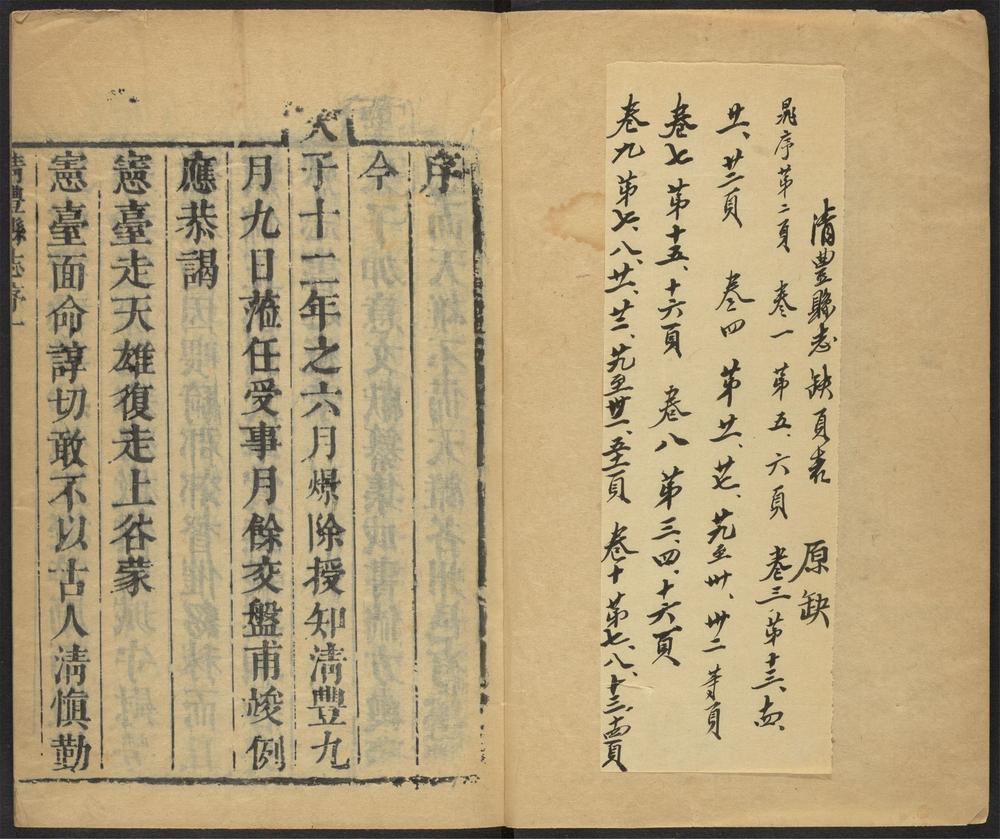 清豐縣志缺頁表 原缺
晁序第二頁 卷一 第五、六頁 卷三、第十三、十四、
廿、廿二頁 卷四 第廿、廿七、廿九至卅、卅二等頁
卷七 第十五、十六頁 卷八 第三、四、十六頁
卷九 第七、八、廿、廿二、廿九至卅一、五十一頁 卷十 第七、八、十三、十四頁
序
今
天子十二年之六月爆除授知清豐九
月九日蒞任受事月餘交盤甫竣例
應恭謁
憲臺走天雄復走上谷蒙
憲臺面命諄切敢不以古人清慎勤
清豐縣志序一